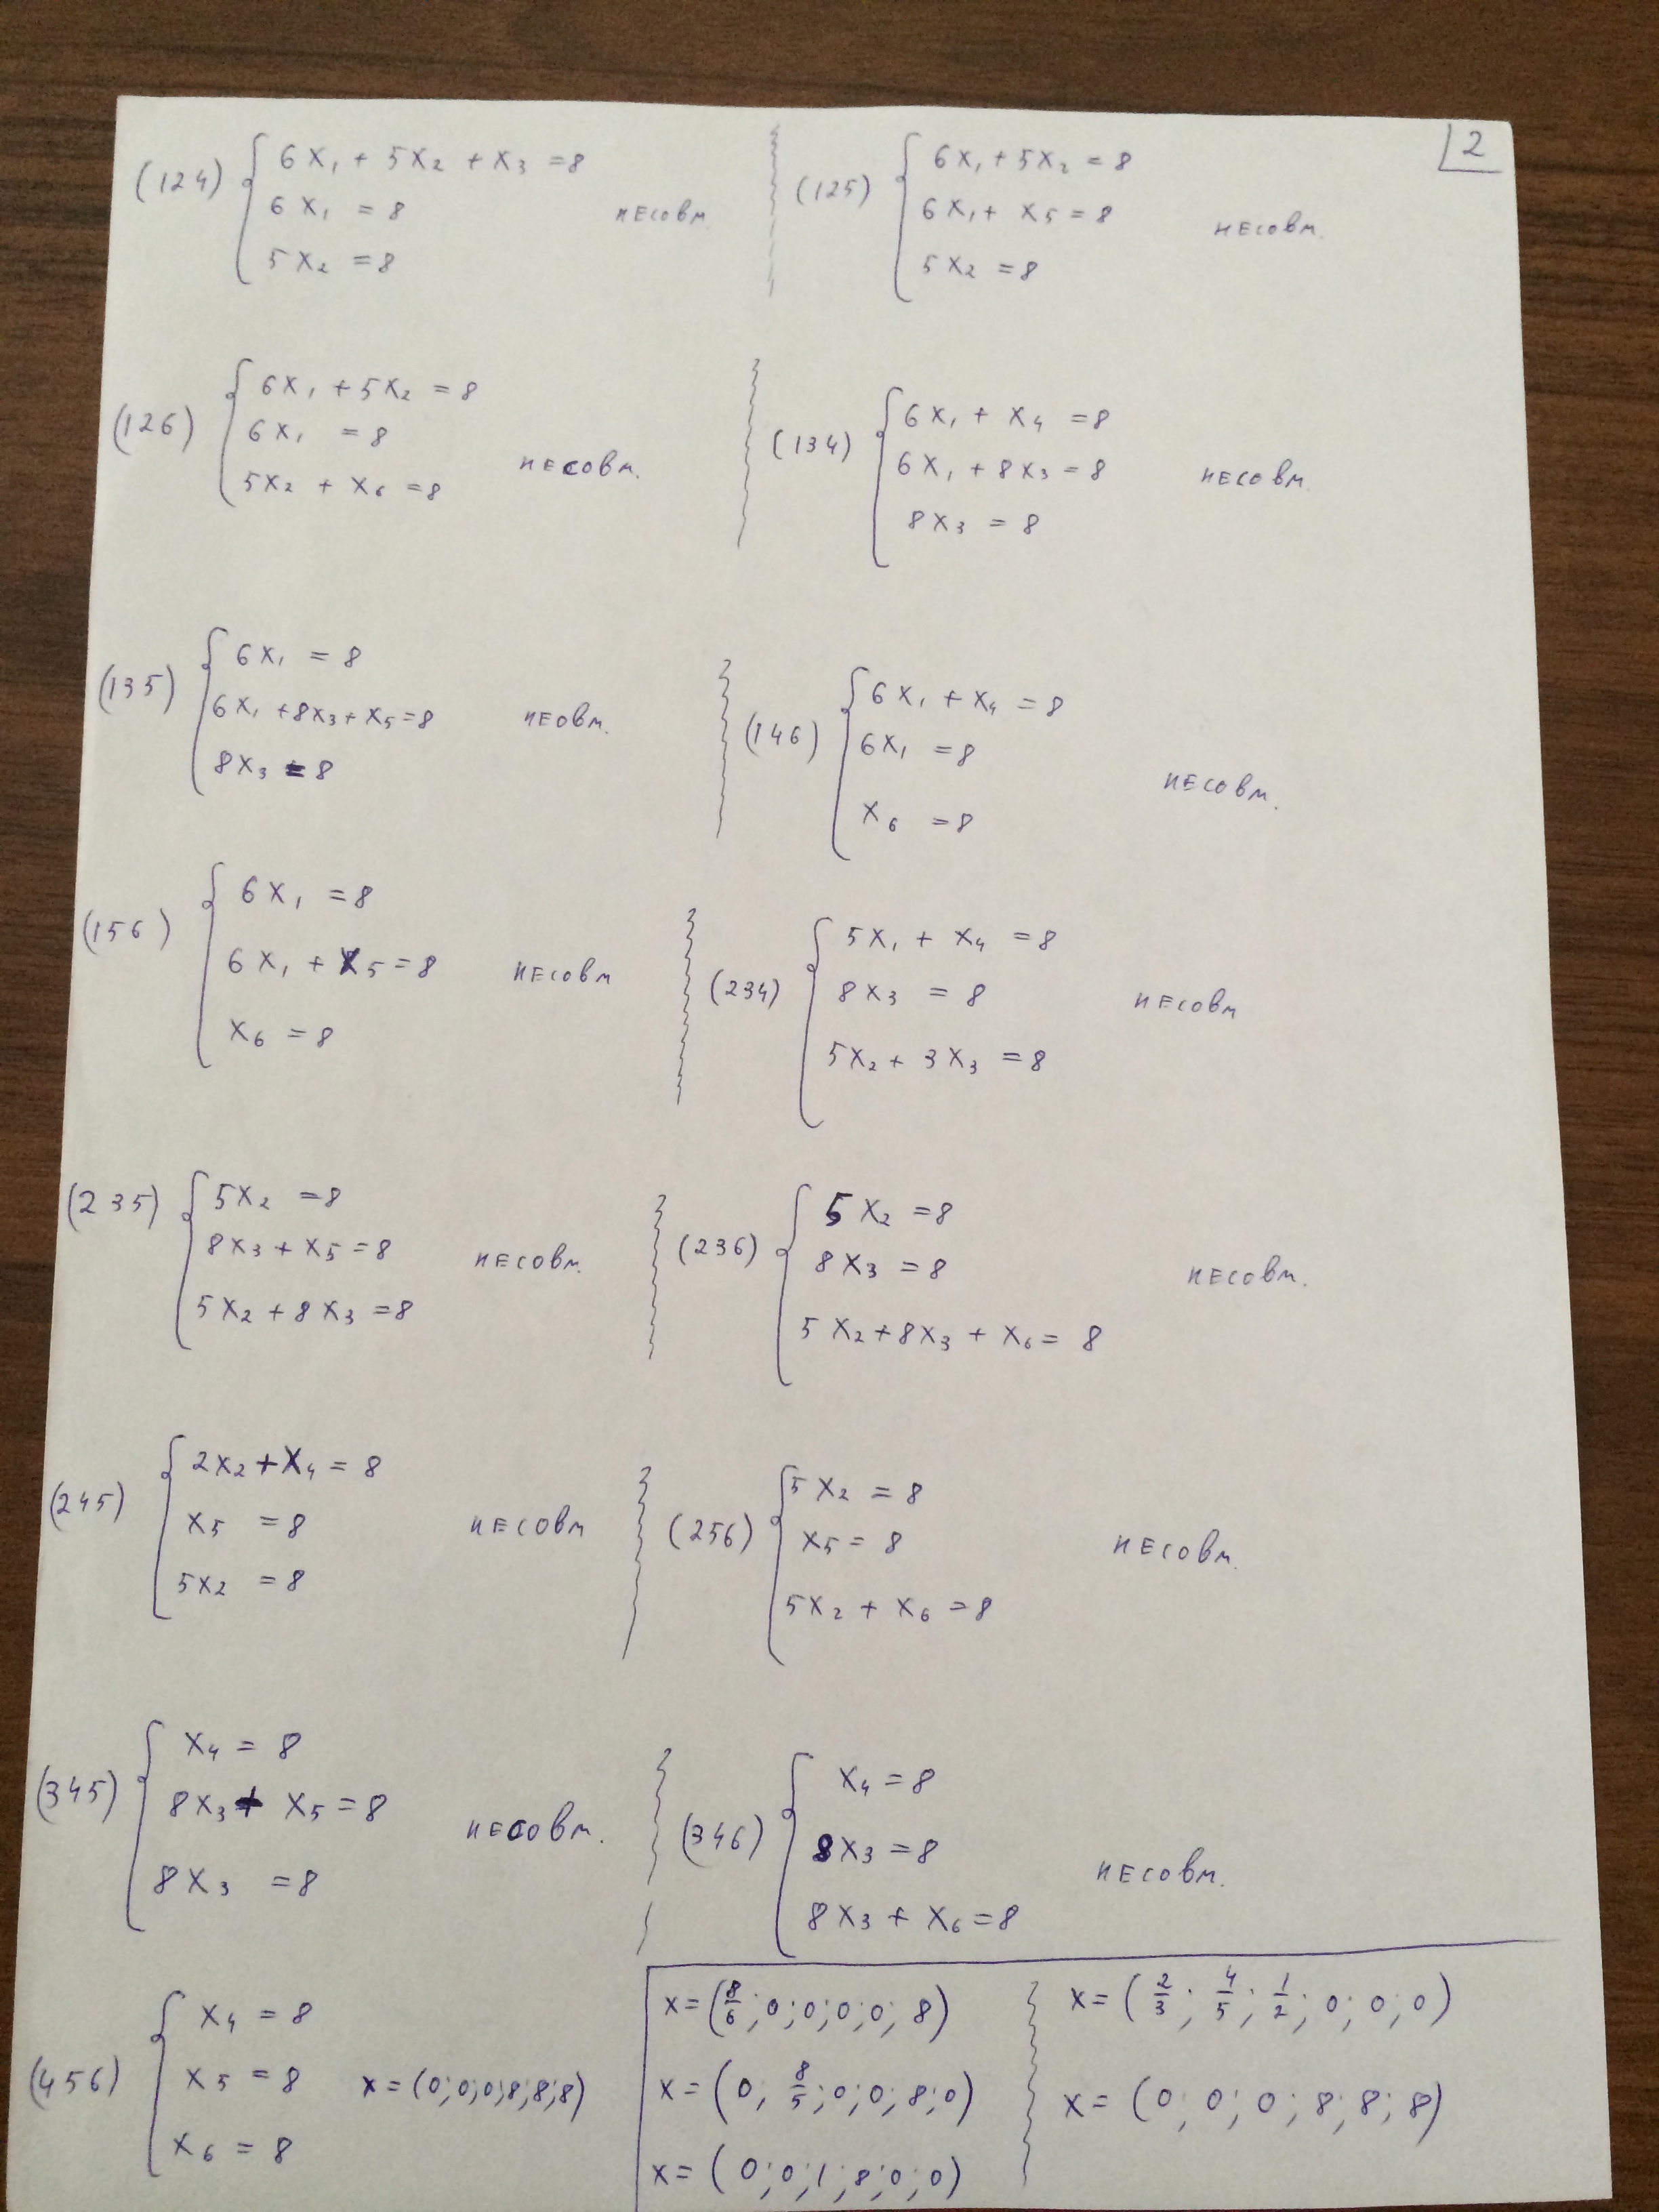 2
(124) { 6x₁ + 5x₂ + x₃ = 8
6x₁ = 8
5x₂ = 8
несовм.
(125) { 6x₁ + 5x₂ = 8
6x₁ + x₅ = 8
5x₂ = 8
несовм.
(126) { 6x₁ + 5x₂ = 8
6x₁ = 8
5x₂ + x₆ = 8
несовм.
(134) { 6x₁ + x₄ = 8
6x₁ + 8x₃ = 8
8x₃ = 8
несовм.
(135) { 6x₁ = 8
6x₁ + 8x₃ + x₅ = 8
8x₃ = 8
неовм.
(146) { 6x₁ + x₄ = 8
6x₁ = 8
x₆ = 8
несовм.
(156) { 6x₁ = 8
6x₁ + x₅ = 8
x₆ = 8
несовм
(234) { 5x₁ + x₄ = 8
8x₃ = 8
5x₂ + 3x₃ = 8
несовм
(235) { 5x₂ = 8
8x₃ + x₅ = 8
5x₂ + 8x₃ = 8
несовм.
(236) { 5x₂ = 8
8x₃ = 8
5x₂ + 8x₃ + x₆ = 8
несовм.
(245) { 2x₂ + x₄ = 8
x₅ = 8
5x₂ = 8
несовм
(256) { 5x₂ = 8
x₅ = 8
5x₂ + x₆ = 8
несовм.
(345) { x₄ = 8
8x₃ + x₅ = 8
8x₃ = 8
несовм.
(346) { x₄ = 8
8x₃ = 8
8x₃ + x₆ = 8
несовм.
(456) { x₄ = 8
x₅ = 8
x₆ = 8
x = (0;0;0;8;8;8)
x = (8/6; 0; 0; 0; 0; 8)
x = (0; 8/5; 0; 0; 8; 0)
x = (0; 0; 1; 8; 0; 0)
x = (2/3; 4/5; 1/2; 0; 0; 0)
x = (0; 0; 0; 8; 8; 8)